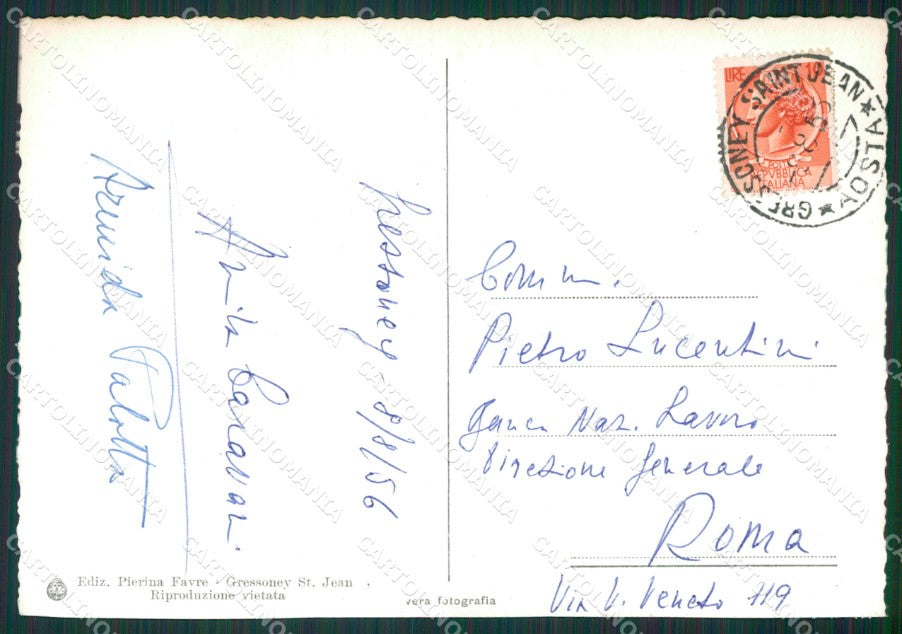 Gressoney - 8/8/56
Armida Palotta
LIRE
REPUBBLICA
ITALIANA
GRESSONEY SAINT JEAN ★ AOSTA ★
Comm.
Pietro Lucentini
Banca Naz. Lavoro
Direzione Generale
Roma
Via V. Veneto 119
Ediz. Pierina Favre - Gressoney St. Jean
Riproduzione vietata
vera fotografia
CARTOLINOMANIA